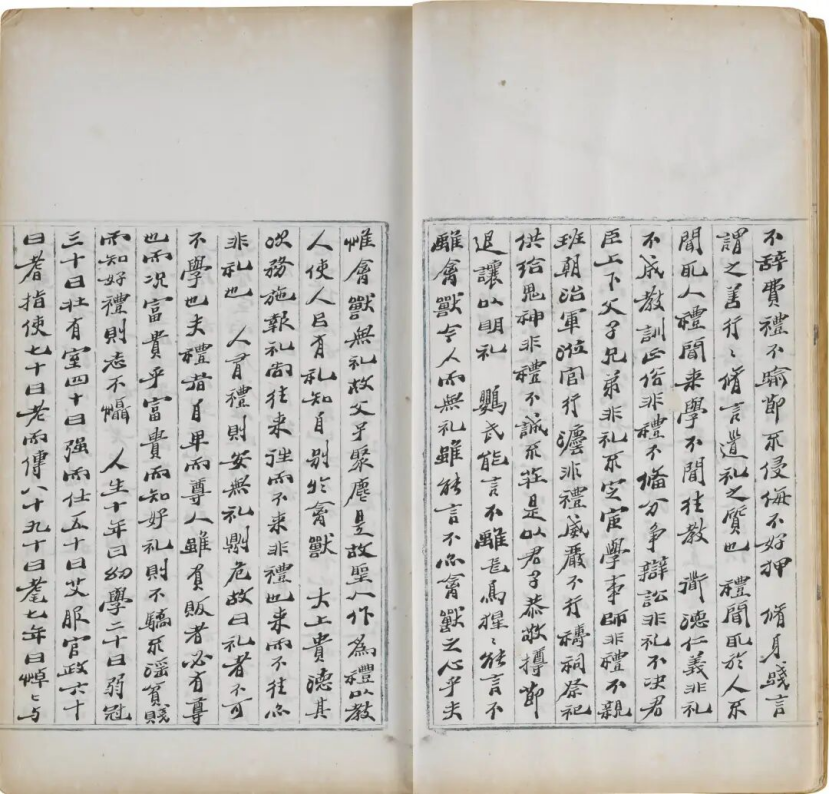 不辞費禮不踰節不侵侮不好狎　脩身踐言
謂之善行〻脩言道礼之質也　禮聞取於人不
聞取人禮聞来學不聞往教　道德仁義非礼
不成教訓正俗非禮不備分争辯訟非礼不决君
臣上下父子兄弟非礼不定宦學事師非禮不親
班朝治軍涖官行灋非禮威嚴不行禱祠祭祀
供给鬼神非禮不誠不莊是以君子恭敬撙節
退讓以明礼　鸚武能言不離飛鳥猩〻能言不
離禽獸今人而無礼雖能言不亦禽獸之心乎夫
惟禽獸無礼故父子聚麀是故聖人作為禮以教
人使人以有礼知自别於禽獸　太上貴德其
次務施報礼尚往来往而不来非禮也来而不往亦
非礼也　人有禮則安無礼則危故曰礼者不可
不學也夫禮者自卑而尊人雖負販者必有尊
也而况富貴乎富貴而知好礼則不驕不滛貧賤
而知好禮則志不懾　人生十年曰幼學二十曰弱冠
三十曰壮有室四十曰强而仕五十曰艾服官政六十
曰耆指使七十曰老而傳八十九十曰耄七年曰悼〻与